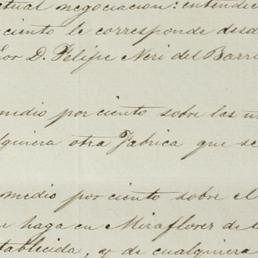 ctual negociacion: entendie
ciento le corresponde desd
or D. Felipe Neri del Barri
medio por ciento sobre las u
lquiera otra Fabrica que se
medio por ciento sobre el
e haga en Miraflores de
tablecida, y de cualquiera